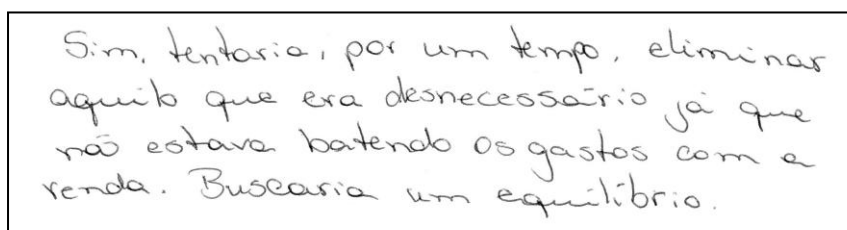 Sim, tentaria, por um tempo, eliminar
aquilo que era desnecessário já que
não estava batendo os gastos com a
renda. Buscaria um equilíbrio.